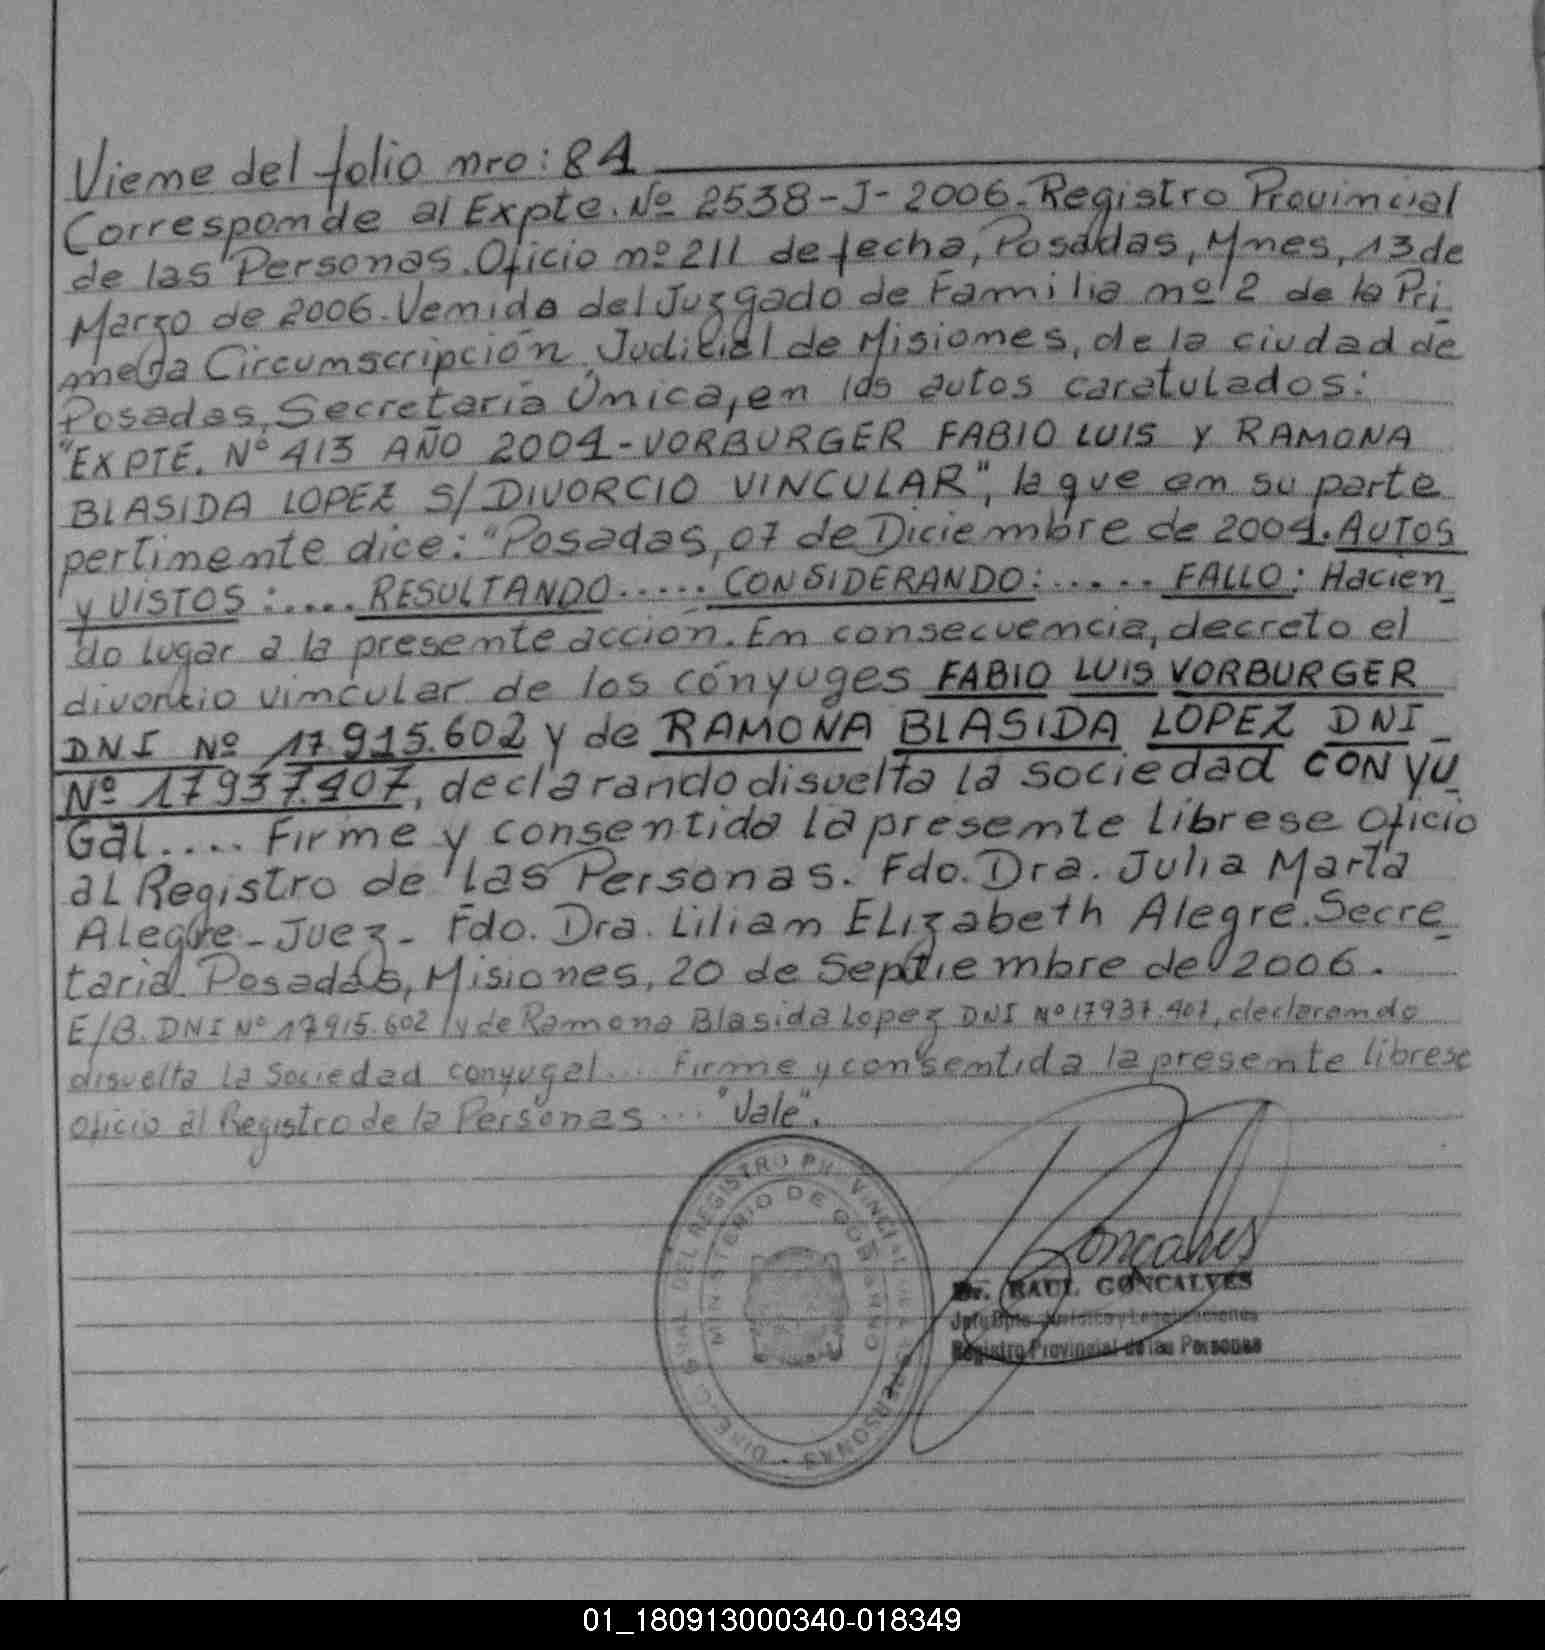 Viene del folio nro: 84
Corresponde al Expte. Nº 2538-J-2006. Registro Provincial
de las Personas. Oficio nº 211 de fecha, Posadas, Mnes, 13 de
Marzo de 2006. Venida del Juzgado de Familia nº 2 de la Pri
mera Circunscripción Judicial de Misiones, de la ciudad de
Posadas, Secretaría Única, en los autos caratulados:
"EXPTE. Nº 413 AÑO 2004-VORBURGER FABIO LUIS y RAMONA
BLASIDA LOPEZ S/DIVORCIO VINCULAR", la que en su parte
pertinente dice: "Posadas, 07 de Diciembre de 2004. AUTOS
y VISTOS:.... RESULTANDO..... CONSIDERANDO:..... FALLO: Hacien_
do lugar a la presente acción. En consecuencia, decreto el
divorcio vincular de los cónyuges FABIO LUIS VORBURGER
DNI Nº 17.915.602 y de RAMONA BLASIDA LOPEZ DNI_
Nº 17937.407, declarando disuelta la sociedad CONYU_
Gal.... Firme y consentida la presente librese oficio
al Registro de las Personas. Fdo. Dra. Julia Marta
Alegre-Juez- Fdo. Dra. Lilian Elizabeth Alegre. Secre_
taria. Posadas, Misiones, 20 de Septiembre de 2006.
E/B. DNI Nº 17915.602 y de Ramona Blasida Lopez DNI Nº 17937.407, declarando
disuelta la Sociedad conyugal... Firme y consentida la presente librese
oficio al Registro de la Personas... "Vale".
DIRECC. GRAL. DEL REGISTRO PROVINCIAL DE LAS PERSONAS
MINISTERIO DE GOBIERNO
Goncalves
Dr. RAUL GONCALVES
Jefe Dpto. Jurídico y Legalizaciones
Registro Provincial de las Personas
01_180913000340-018349